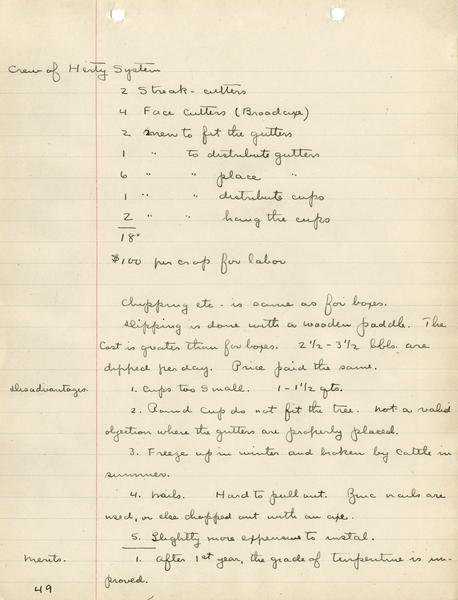 Crew of Herty System
2 Streak-cutters
4 Face Cutters (Broadaxe)
2 men to fit the gutters
1 " to distribute gutters
6 " " place "
1 " " distribute cups
2 " " hang the cups
18
$100 per crop for labor
Chipping etc. is same as for boxes.
Dipping is done with a wooden paddle. The
Cost is greater than for boxes. 2 1/2 - 3 1/2 bbls. are
dipped per day. Price paid the same.
Disadvantages. 1. Cups too small. 1 - 1 1/2 qts.
2. Round cups do not fit the tree. Not a valid
objection where the gutters are properly placed.
3. Freeze up in winter and broken by cattle in
summer.
4. Nails. Hard to pull out. Zinc nails are
used, or else chopped out with an axe.
5. Slightly more expensive to instal.
Merits. 1. After 1st year, the grade of turpentine is im-
proved.
49